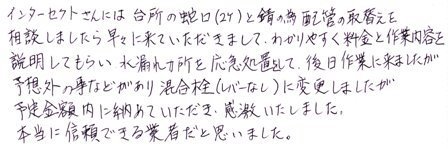 インターセクトさんには 台所の蛇口(2ヶ)と錆の為配管の取替えを
相談しましたら早々に来ていただきまして、わかりやすく料金と作業内容を
説明してもらい 水漏れヶ所を応急処置をして、後日作業に来ましたが
予想外の事などがあり 混合栓(レバーなし)に変更しましたが
予定金額内に納めていただき、感激いたしました。
本当に信頼できる業者だと思いました。